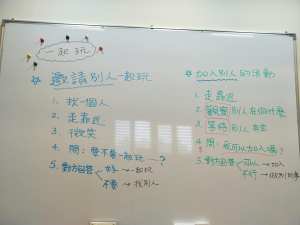 一起玩
☆ 邀請別人一起玩
1. 找一個人
2. 走靠近
3. 微笑
4. 問：要不要一起玩…?
5. 對方回答
好 → 一起玩
不要 → 找別人
☆ 加入別人的活動
1. 走靠近
2. 觀察別人在做什麼
3. 等待
4. 問：我可以加入嗎?
5. 對方回答
可以 → 加入
不行 →